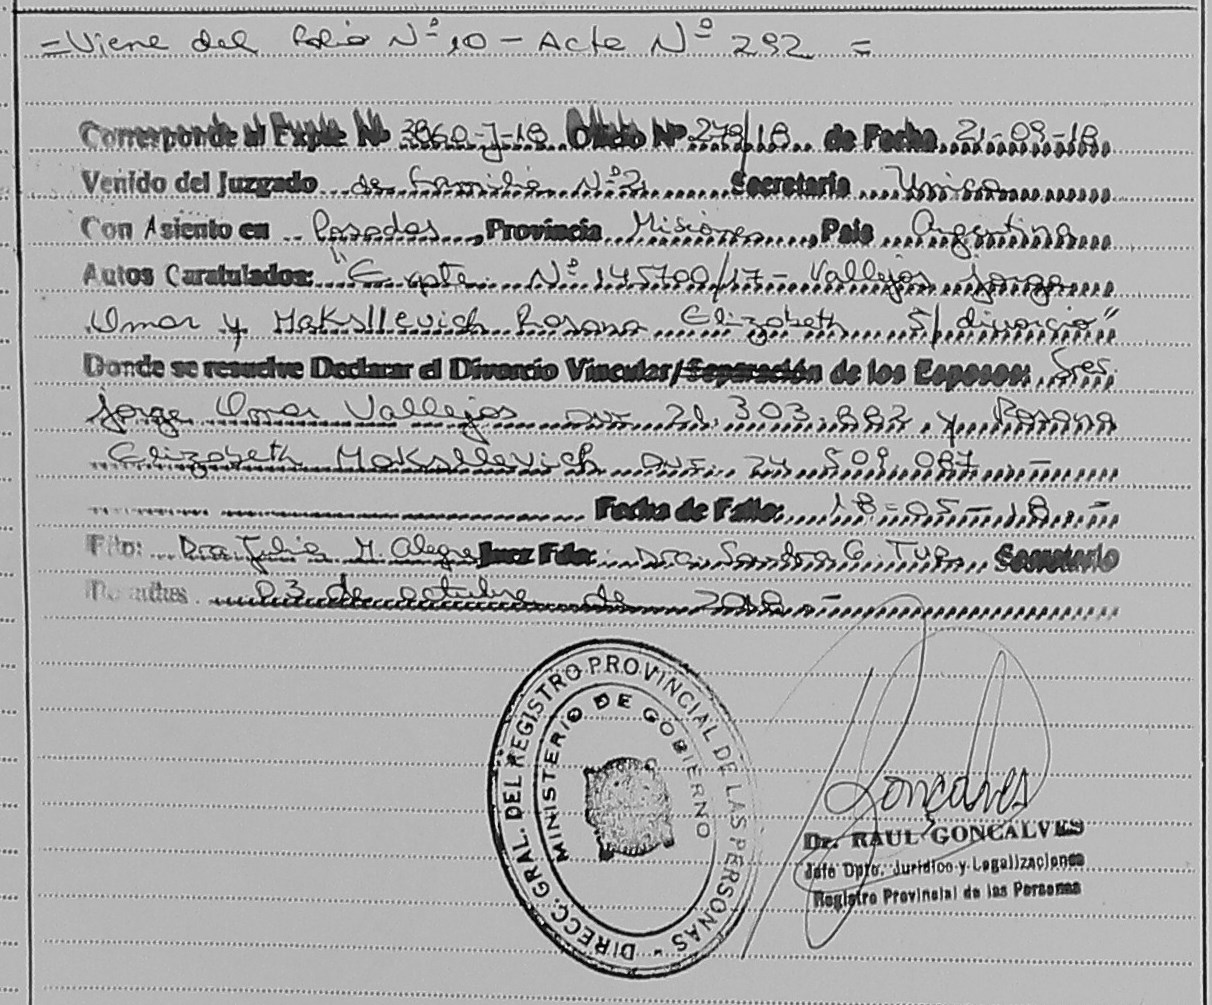 = Viene del folio Nº 10 - Acta Nº 292 =
Corresponde al Expte Nº 3860-J-18 Oficio Nº 278/18 de Fecha 21-09-18
Venido del Juzgado de Familia Nº 2 Secretaría Unica
Con Asiento en Posadas, Provincia Misiones, País Argentina
Autos Caratulados: "Expte. Nº 145700/17 - Vallejos Jorge
Omar y Maksllevich Rosana Elizabeth S/ divorcio"
Donde se resuelve Declarar el Divorcio Vincular/Separación de los Esposos: Sres
Jorge Omar Vallejos DNI 21.303.882 y Rosana
Elizabeth Maksllevich DNI 24 509.087 -
Fecha de Fallo: 18-05-18 -
Fdo: Dra Julia M. Alegre Juez Fdo: Dra. Sandra G. Secretario
03 de octubre de 2018 -
DIRECC. GRAL. DEL REGISTRO PROVINCIAL DE LAS PERSONAS
MINISTERIO DE GOBIERNO
Goncalves
Dr. RAUL GONCALVES
Jefe Dpto. Jurídico y Legalizaciones
Registro Provincial de las Personas